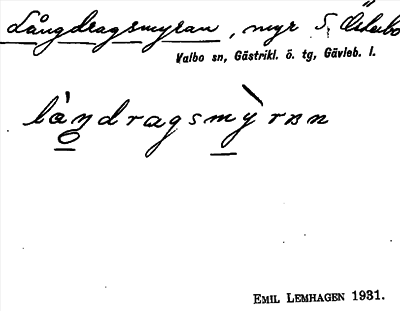 Långdragsmyran, myr S, Österbo
Valbo sn, Gästrikl. ö. tg, Gävleb. l.
lå̀ŋdragsmỳrɐn
EMIL LEMHAGEN 1931.